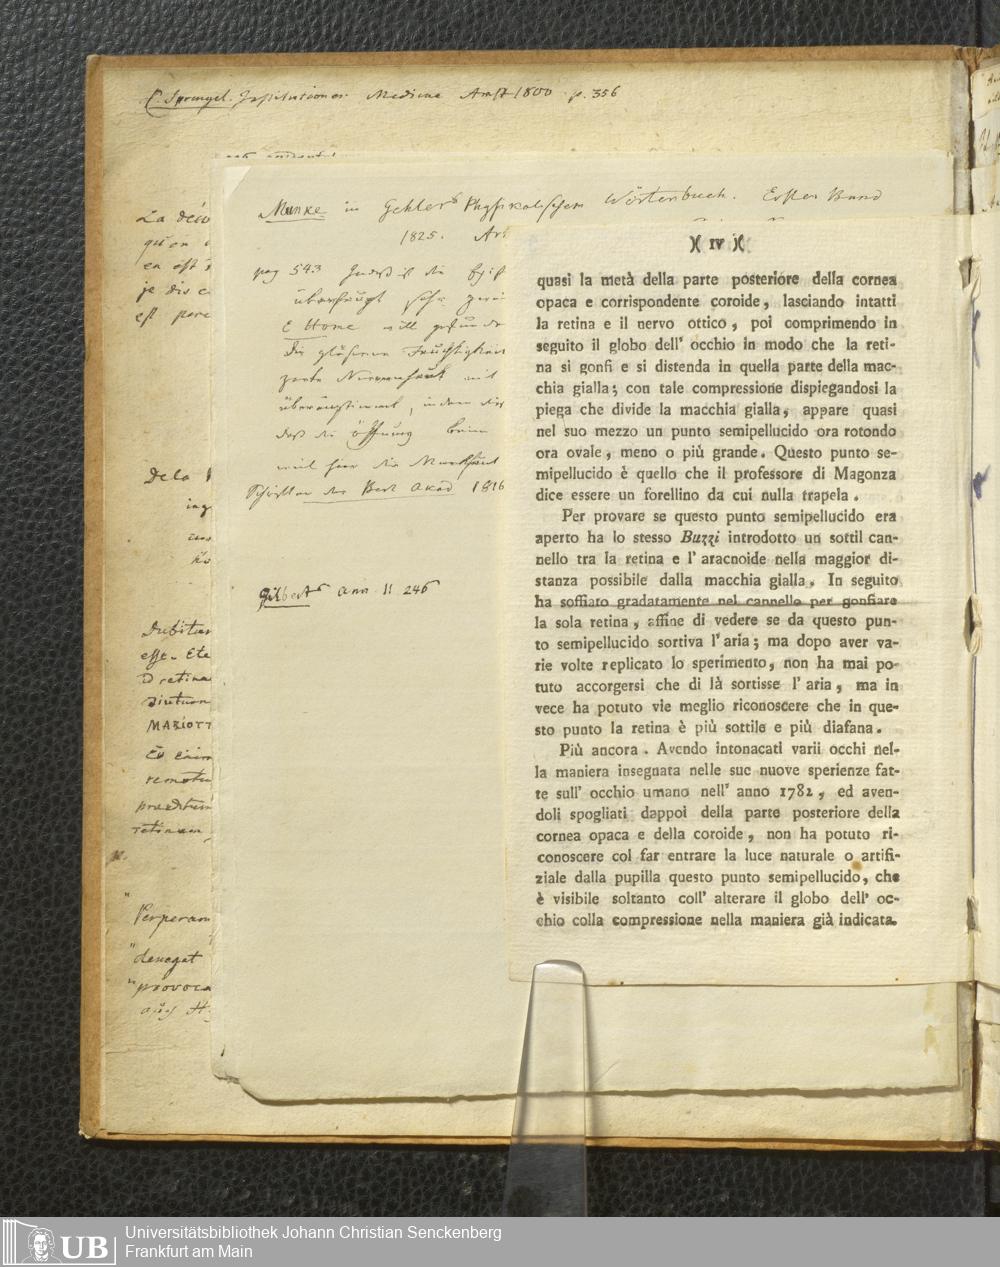 C. Sprengel. Institutiones Medicae Amst 1800 p. 356
La
qu'on
en est
je dis
est
De la
Dubitur
esse. Ete
id retinae
MABIOTT
remotu
praeditum
retinam
Perperam
denegat
provoca
Munke in Gehlers Physikalischem Wörterbuch. Erster Band
1825. Art
pag 543 Indeß ist die
überhaupt sehr
E Home will gefunden
die gläserne Feuchtigkeit
zarte Nervenhaut mit
übereinstimmt, indem
daß die Öffnung beim
weil hier die Markhaut
Schriften der Berl Akad 1816
Gilberts Ann II 246
)( IV )(
quasi la metà della parte posteriore della cornea
opaca e corrispondente coroide, lasciando intatti
la retina e il nervo ottico, poi comprimendo in
seguito il globo dell' occhio in modo che la reti-
na si gonfi e si distenda in quella parte della mac-
chia gialla; con tale compressione dispiegandosi la
piega che divide la macchia gialla, appare quasi
nel suo mezzo un punto semipellucido ora rotondo
ora ovale, meno o più grande. Questo punto se-
mipellucido è quello che il professore di Magonza
dice essere un forellino da cui nulla trapela.
Per provare se questo punto semipellucido era
aperto ha lo stesso Buzzi introdotto un sottil can-
nello tra la retina e l' aracnoide nella maggior di-
stanza possibile dalla macchia gialla. In seguito
ha soffiato gradatamente nel cannello per gonfiare
la sola retina, affine di vedere se da questo pun-
to semipellucido sortiva l'aria; ma dopo aver va-
rie volte replicato lo sperimento, non ha mai po-
tuto accorgersi che di là sortisse l' aria, ma in
vece ha potuto vie meglio riconoscere che in que-
sto punto la retina è più sottile e più diafana.
Più ancora. Avendo intonacati varii occhi nel-
la maniera insegnata nelle sue nuove sperienze fat-
te sull' occhio umano nell' anno 1782, ed aven-
doli spogliati dappoi della parte posteriore della
cornea opaca e della coroide, non ha potuto ri-
conoscere col far entrare la luce naturale o artifi-
ziale dalla pupilla questo punto semipellucido, che
è visibile soltanto coll' alterare il globo dell' oc-
chio colla compressione nella maniera già indicata.
UB
Universitätsbibliothek Johann Christian Senckenberg
Frankfurt am Main